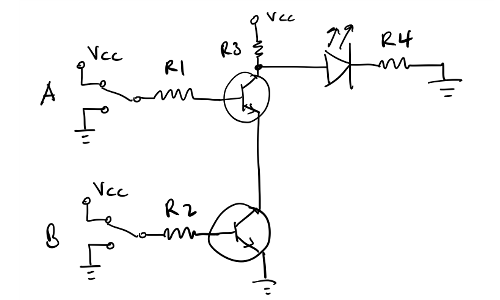 Vcc
R3
R4
Vcc
R1
A
Vcc
R2
B